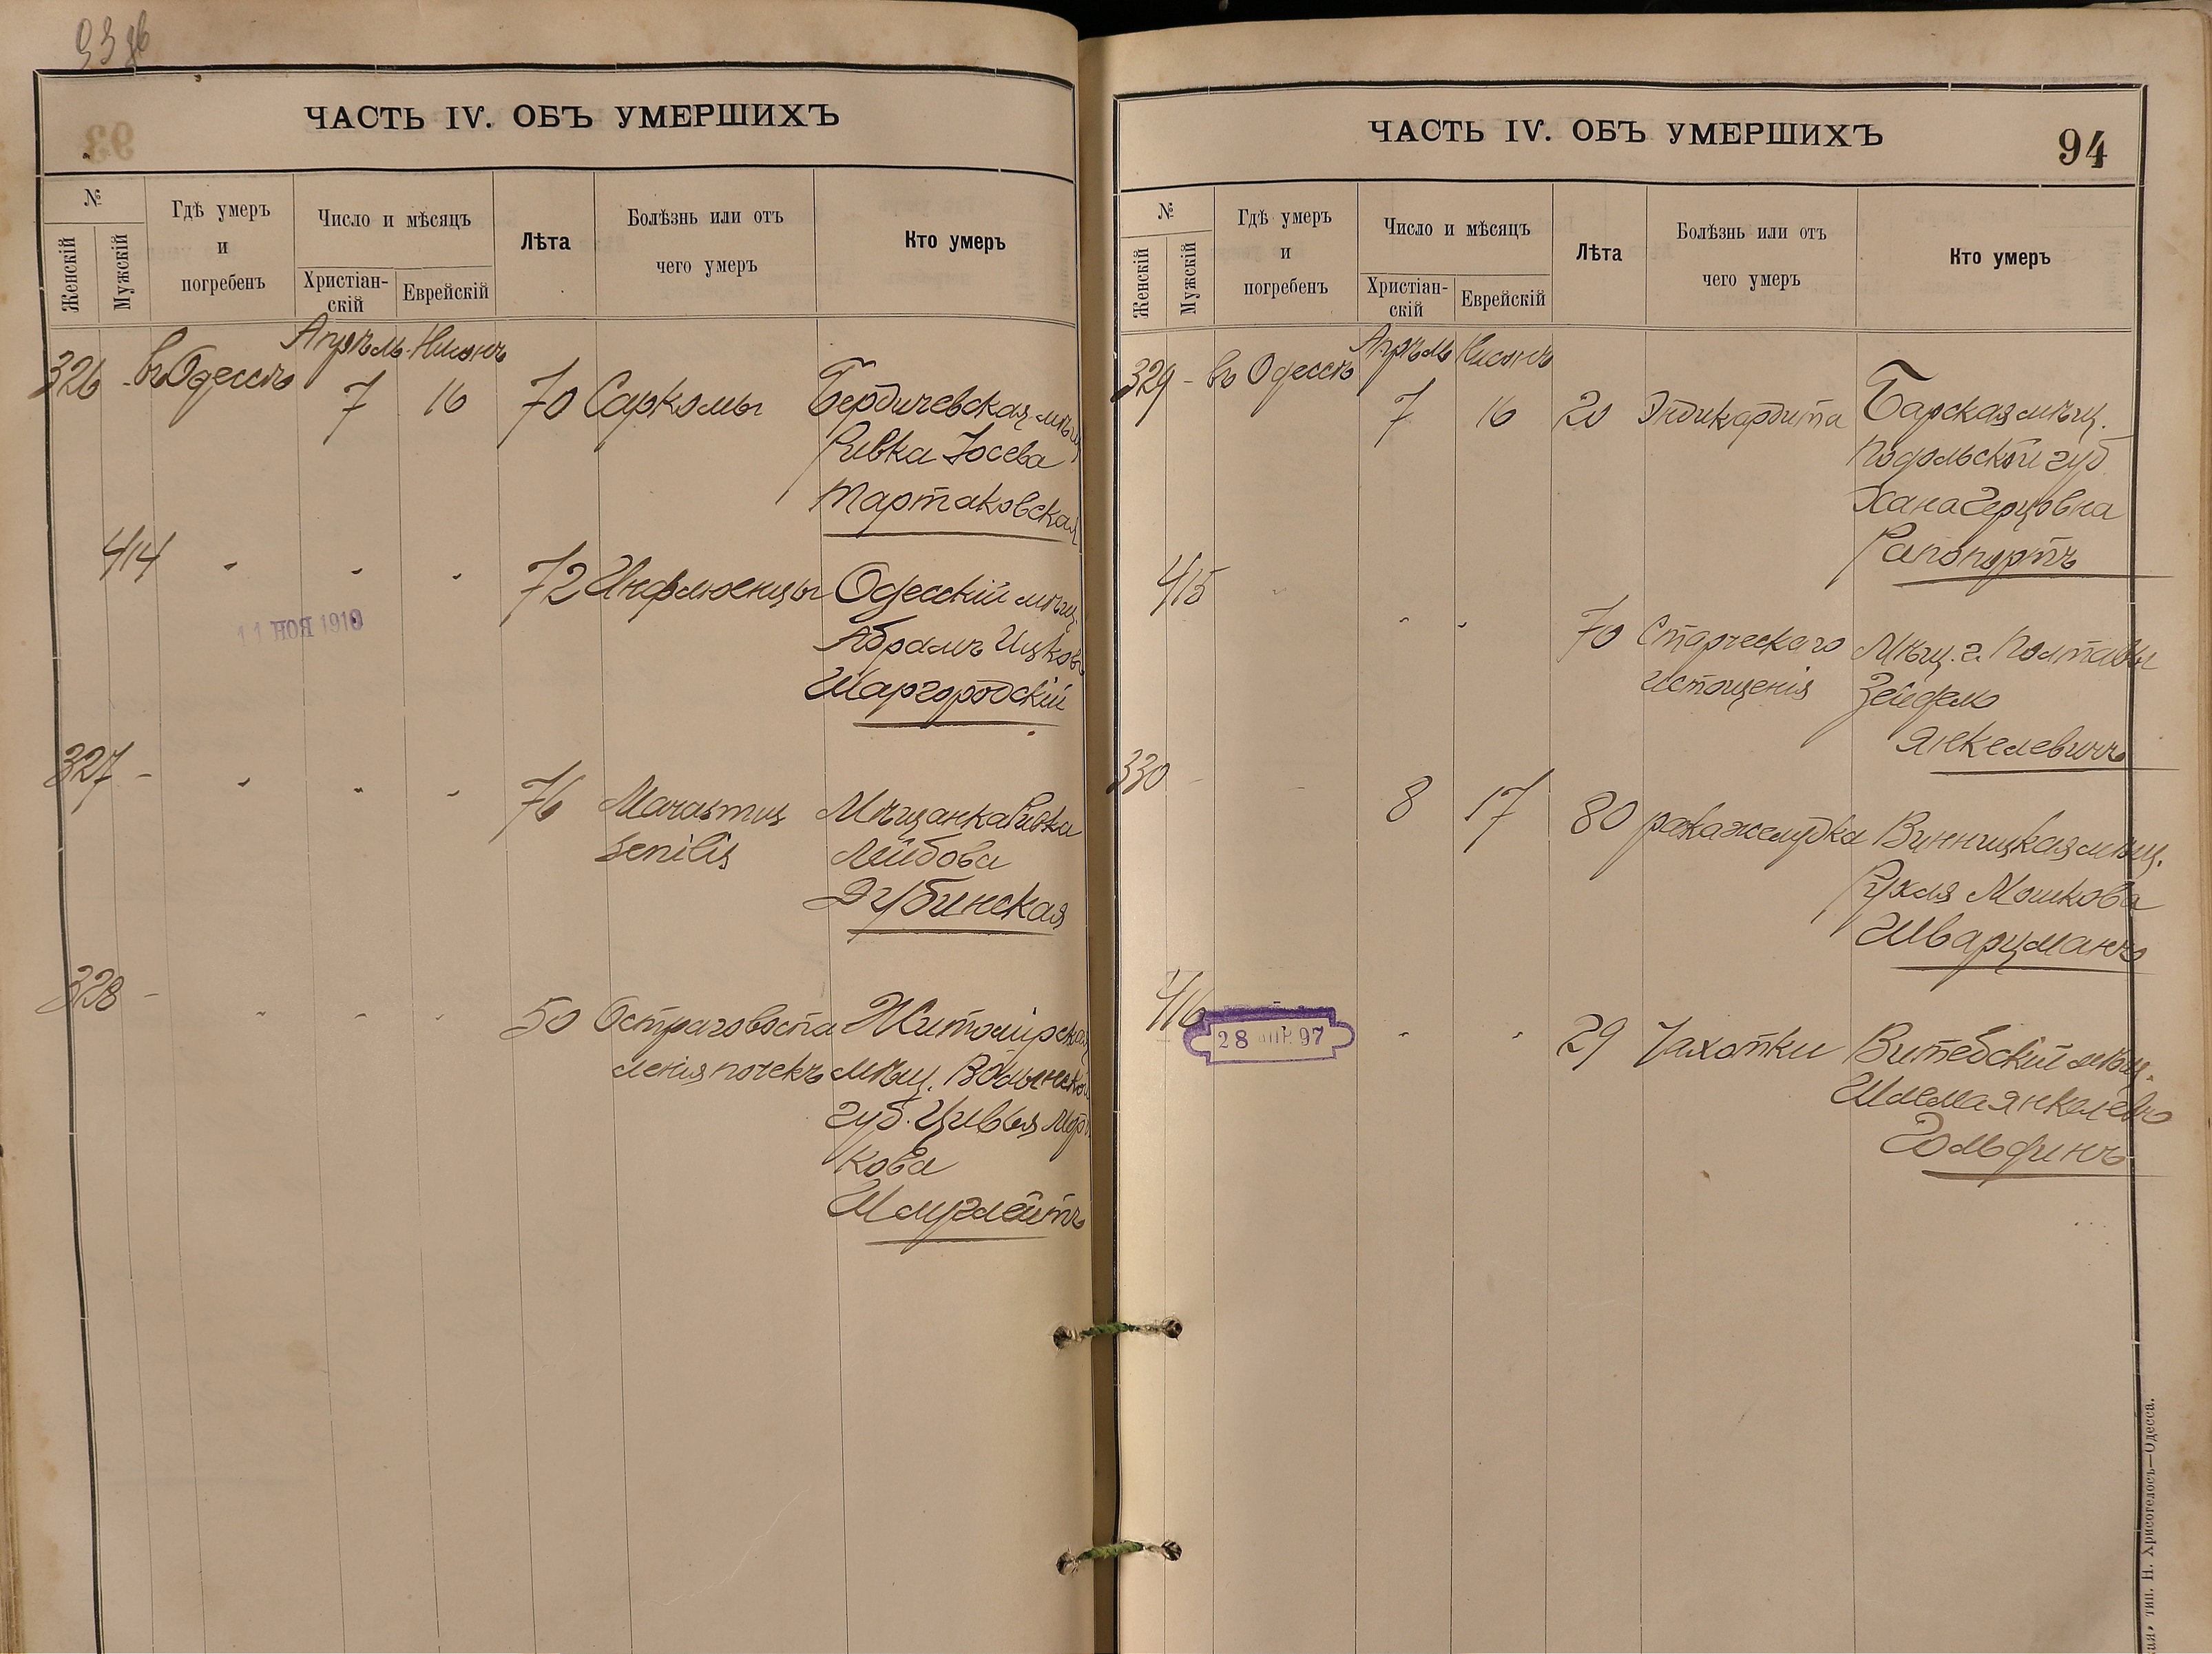 93 об
ЧАСТЬ IV. ОБЪ УМЕРШИХЪ
№
Женскій
Мужскій
Гдѣ умеръ
и
погребенъ
Число и мѣсяцъ
Христіан-
скій
Еврейскій
Лѣта
Болѣзнь или отъ
чего умеръ
Кто умеръ
Апрѣль Нисонъ
326 - въ Одессѣ 7 16 70 Саркомы Бердичевская мѣщ
Ривка Іосева
Мартаковская
414 " " " 72 Инфлюенцы Одесскій мѣщ
Абрамъ Ицковъ
Шаргородскій
11 НОЯ 1910
327 - " " " 76 Marasmus Мѣщанка Ривка
senilis Лейбова
Дубинская
328 - " " " 50 Остраго воспа Житомірская
ленія почекъ мѣщ. Волынской
губ. Цивья Мор
кова
Шмуглейтъ
ЧАСТЬ IV. ОБЪ УМЕРШИХЪ
94
№
Женскій
Мужскій
Гдѣ умеръ
и
погребенъ
Число и мѣсяцъ
Христіан-
скій
Еврейскій
Лѣта
Болѣзнь или отъ
чего умеръ
Кто умеръ
Апрѣль Нисонъ
329 - въ Одессѣ 7 16 20 Эндикардита Барская мѣщ.
Подольской губ
Хана Герцовна
Рапопортъ
415 " " " 70 Старческаго Мѣщ. г. Полтавы
истощенія Зейделъ
Янкелевичъ
330 - - 8 17 80 рака желудка Винницкая мѣщ.
Рухля Мошкова
Шварцманъ
416 " " " 29 Чахотки Витебскій мѣщ.
Шлема Янкелевъ
Гольфинъ
28 АПР. 97
тип. Н. Хрисогелосъ—Одесса.